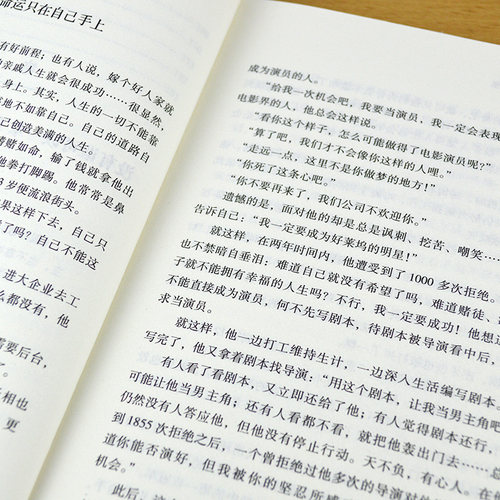 命运只在自己手上
有好前程；也有人说，嫁个好人家就
亲戚人生就会很成功……很显然，
身上。其实，人生的一切不能靠
地不如靠自己。自己的道路自
己创造美满的人生。
赌如命，输了钱就拿他出
他拳打脚踢。他常常是鼻
岁便流浪街头。
果这样下去，自己只
了吗？自己不能这
进大企业去工
么都没有，他
需要后台，
长相也
更
成为演员的人。
“给我一次机会吧，我要当演员，我一定会表现
电影界的人，他总会这样说。
“看你这个样子，怎么可能做得了电影演员呢？”
“算了吧，我们才不会像你这样的人哩。”
“走远一点，这里不是你做梦的地方！”
“你死了这条心吧。”
“你不要再来了，我们公司不欢迎你。”
遗憾的是，面对他的却是总是讽刺、挖苦、嘲笑……
告诉自己：“我一定要成为好莱坞的明星！”
就这样，在两年时间内，他遭受到了1000多次拒绝。
也不禁暗自垂泪：难道自己就没有希望了吗，难道赌徒、
子就不能拥有幸福的人生吗？不行，我一定要成功！他想
不能直接成为演员，何不先写剧本，待剧本被导演看中后，
求当演员。
就这样，他一边打工维持生计，一边深入生活编写剧本，
写完了，他又拿着剧本找导演：“用这个剧本，让我当男主角吧
有人看了看剧本，又立即还给了他；有人觉得剧本还行，
可能让他当男主角；还有人看都不看，就把他轰出门去……
仍然没有人答应他，但他没有停止行动。天不负，有心人。在
到1855次拒绝之后，一个曾拒绝过他多次的导演对
道你能否演好，但我被你的坚忍所感
机会。”
此后，这